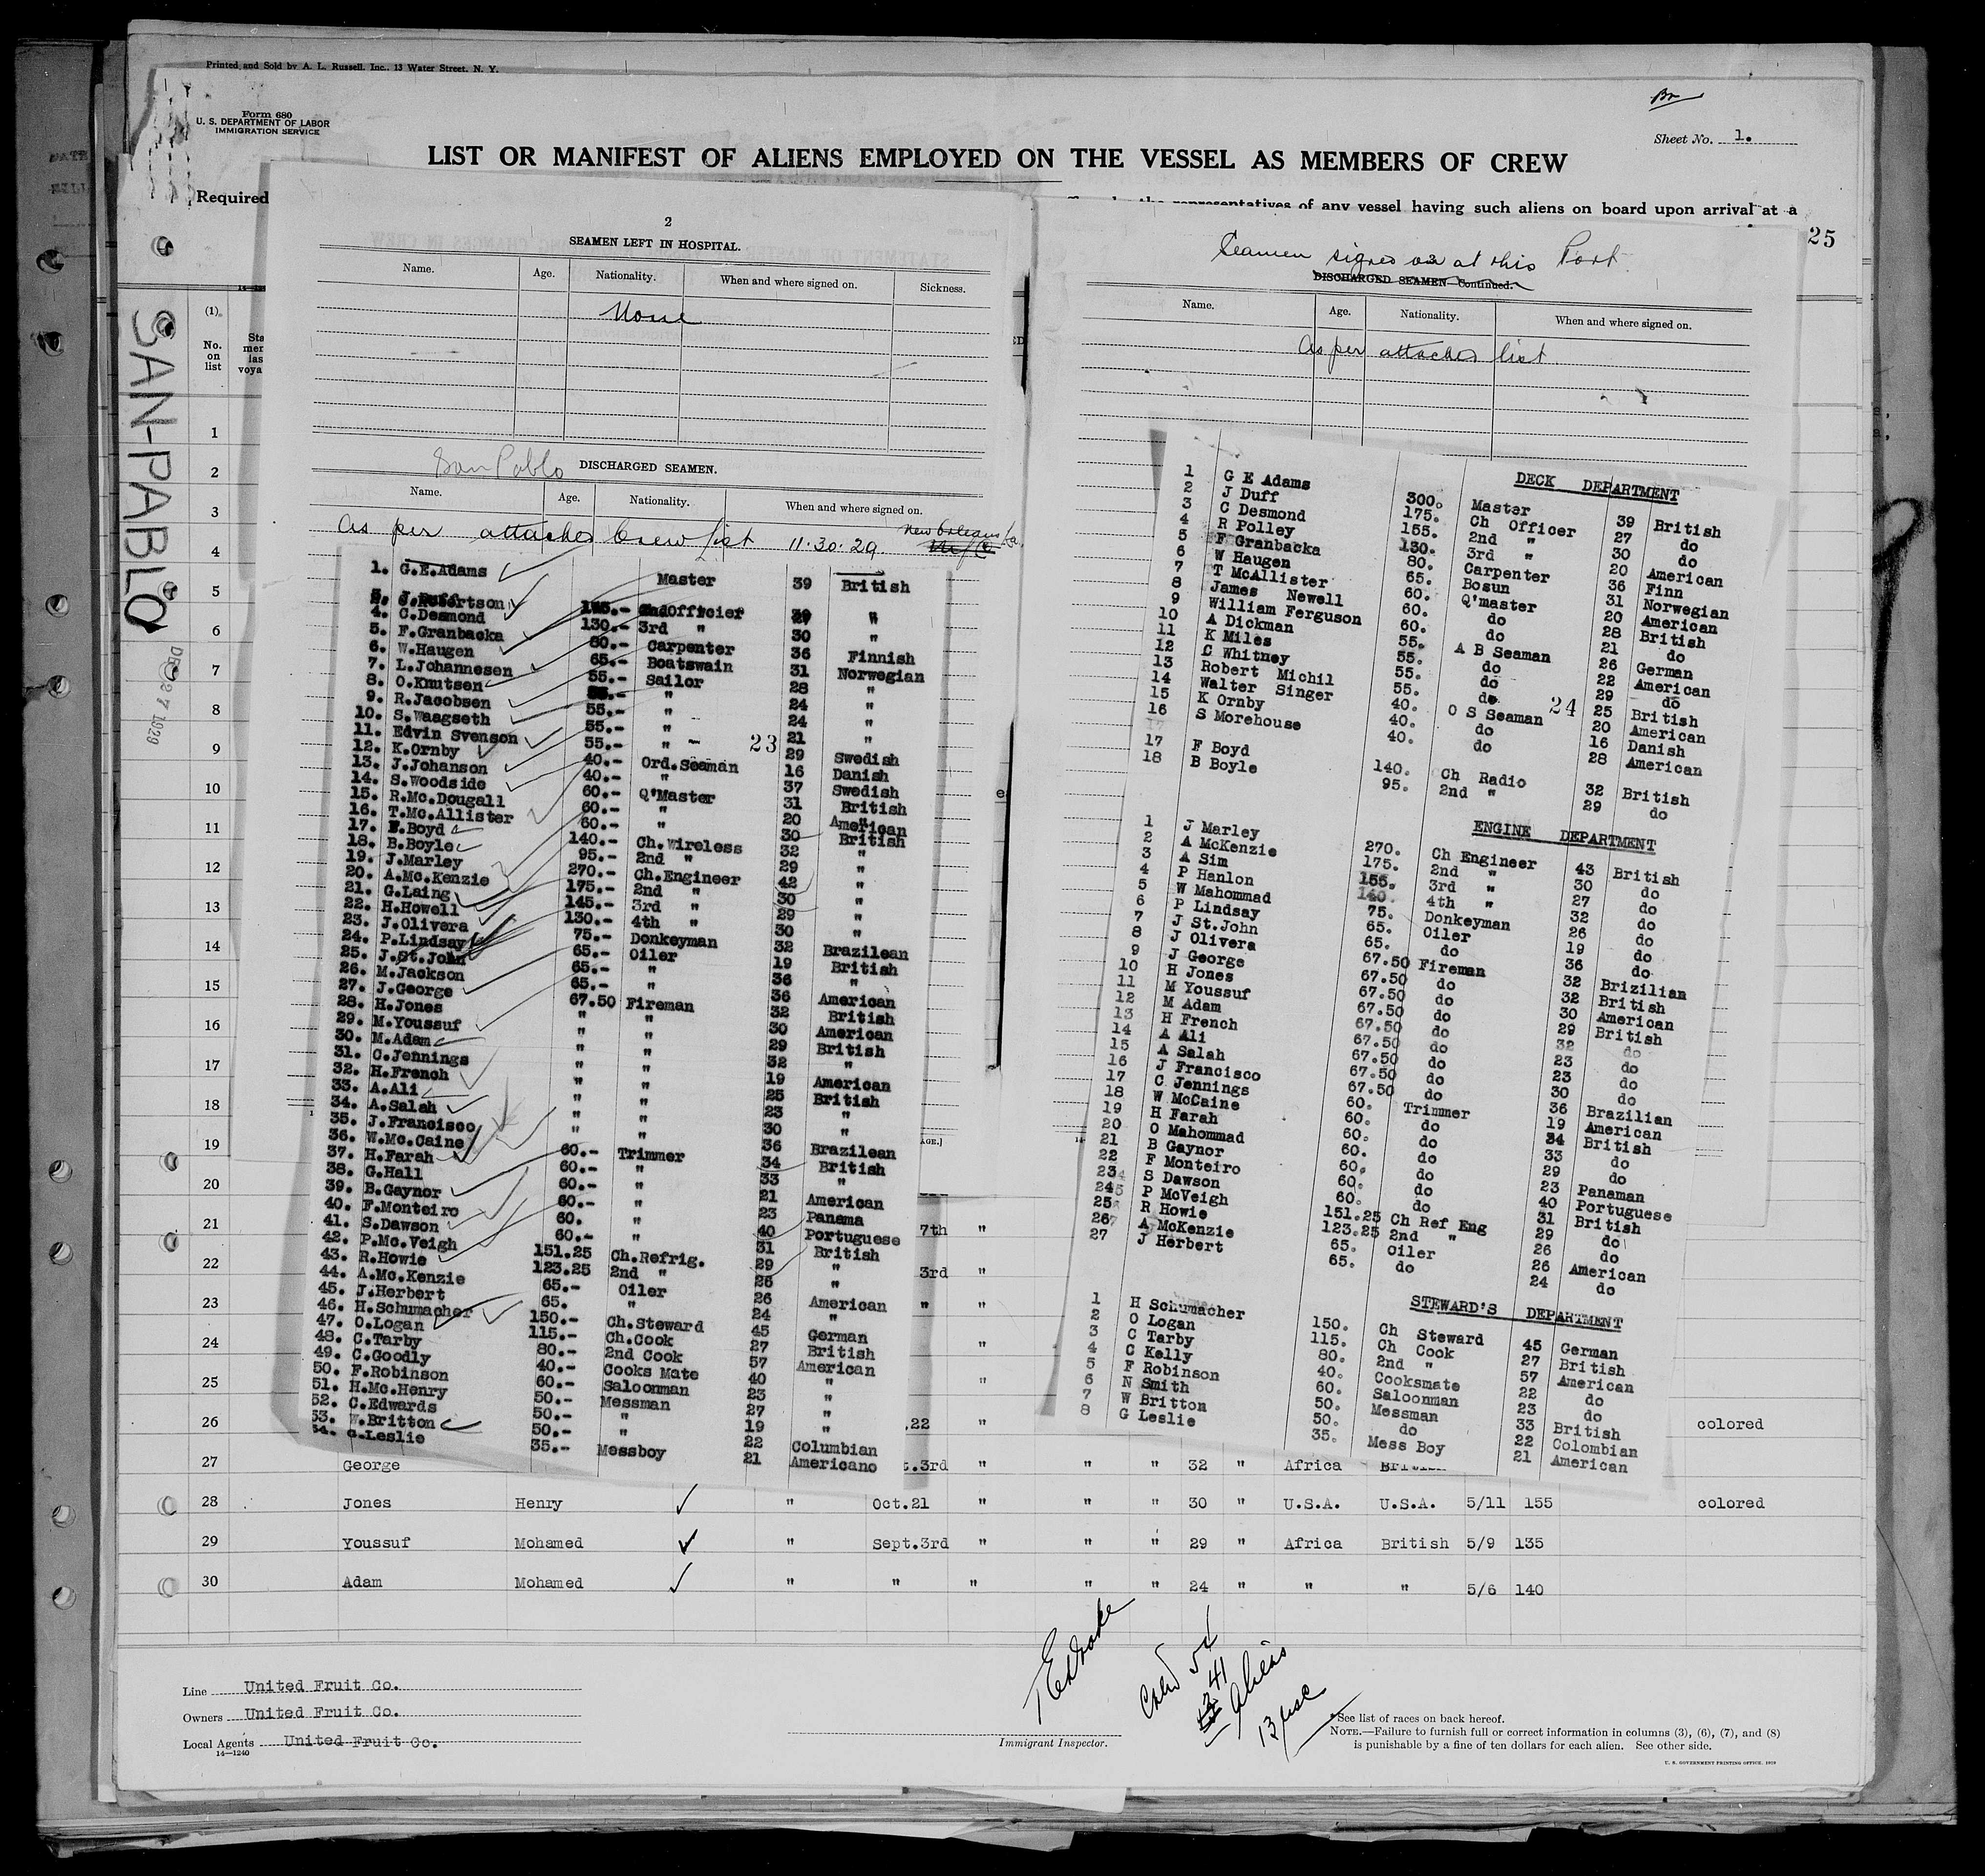 Printed and Sold by A. L. Russell, Inc., 13 Water Street, N. Y.
Form 680
U. S. DEPARTMENT OF LABOR
IMMIGRATION SERVICE
Sheet No. 1.
LIST OR MANIFEST OF ALIENS EMPLOYED ON THE VESSEL AS MEMBERS OF CREW
Required
representatives of any vessel having such aliens on board upon arrival at a
25
SAN-PABLO
(1)
No. on list
2
SEAMEN LEFT IN HOSPITAL.
Name. Age. Nationality. When and where signed on. Sickness.
None
San Pablo DISCHARGED SEAMEN.
Name. Age. Nationality. When and where signed on.
As per attached Crew list 11.30.29. New Orleans La.
1. G.E.Adams Master 39 British
3. 2nd Officier "
4. C.Desmond 130.- 3rd " 30 "
5. F.Granbacka 80.- Carpenter 36 Finnish
6. W.Haugen 65.- Boatswain 31 Norwegian
7. L.Johannesen 55.- Sailor 28 "
8. O.Knutsen " 24 "
9. R.Jacobsen 55.- " 24 "
10. S.Waagseth 55.- " 21 "
11. Edvin Svenson 55.- " 23 29 Swedish
12. K.Ornby 40.- Ord.Seaman 16 Danish
13. J.Johanson 40.- " 37 Swedish
14. S.Woodside 60.- Q'Master 31 British
15. R.Mc.Dougall 60.- " 20 "
16. T.Mc.Allister 60.- " 30 American
17. F.Boyd 140.- Ch.Wireless 32 British
18. B.Boyle 95.- 2nd " 29 "
19. J.Marley 270.- Ch.Engineer 42 "
20. A.Mc.Kenzie 175.- 2nd " 30 "
21. G.Laing 145.- 3rd " 29 "
22. H.Howell 130.- 4th " 30 "
23. J.Olivera 75.- Donkeyman 32 Brazilean
24. P.Lindsay 65.- Oiler 19 British
25. J.St.John 65.- " 36 "
26. M.Jackson 65.- " 36 American
27. J.George 67.50 Fireman 32 British
28. H.Jones " " 30 American
29. M.Youssuf " " 29 British
30. M.Adam " " 32 "
31. C.Jennings " " 19 American
32. H.French " " 25 British
33. A.Ali " " 23 "
34. A.Salah " " 30 "
35. J.Francisco " " 36 Brazilean
36. W.Mc.Caine 60.- Trimmer 34 British
37. H.Farah 60.- " 33 "
38. G.Hall 60.- " 21 American
39. B.Gaynor 60.- " 23 Panama
40. F.Monteiro 60. " 40 Portuguese
41. S.Dawson 60.- " 31 British
42. P.Mc.Veigh 151.25 Ch.Refrig. 29 "
43. R.Howie 123.25 2nd " 26 "
44. A.Mc.Kenzie 65.- Oiler 26 American
45. J.Herbert 65. " 24 "
46. H.Schumacher 150.- Ch.Steward 45 German
47. O.Logan 115.- Ch.Cook 27 British
48. C.Tarby 80.- 2nd Cook 57 American
49. C.Goodly 40.- Cooks Mate 40 "
50. F.Robinson 60.- Saloonman 23 "
51. H.Mc.Henry 50.- Messman 27 "
52. C.Edwards 50.- " 19 "
53. W.Britton 50.- " 22 Columbian
54. G.Leslie 35.- Messboy 21 Americano
Seamen signed on at this Port
DISCHARGED SEAMEN—Continued.
Name. Age. Nationality. When and where signed on.
As per attached list
DECK DEPARTMENT
1 G E Adams 300. Master 39 British
2 J Duff 175. Ch Officer 27 do
3 C Desmond 155. 2nd " 30 do
4 R Polley 130. 3rd " 20 American
5 F Granbacka 80. Carpenter 36 Finn
6 W Haugen 65. Bosun 31 Norwegian
7 T McAllister 60. Q'master 20 American
8 James Newell 60. do 28 British
9 William Ferguson 60. do 21 do
10 A Dickman 55. A B Seaman 26 German
11 K Miles 55. do 22 American
12 C Whitney 55. do 29 do
13 Robert Michil 55. do 24 25 British
14 Walter Singer 40. O S Seaman 20 American
15 K Ornby 40. do 16 Danish
16 S Morehouse 40. do 28 American
17 F Boyd 140. Ch Radio 32 British
18 B Boyle 95. 2nd " 29 do
ENGINE DEPARTMENT
1 J Marley 270. Ch Engineer 43 British
2 A McKenzie 175. 2nd " 30 do
3 A Sim 155. 3rd " 27 do
4 P Hanlon 140. 4th " 32 do
5 W Mahommad 75. Donkeyman 26 do
6 P Lindsay 65. Oiler 19 do
7 J St.John 65. do 36 do
8 J Olivera 67.50 Fireman 32 Brizilian
9 J George 67.50 do 32 British
10 H Jones 67.50 do 30 American
11 M Youssuf 67.50 do 29 British
12 M Adam 67.50 do 32 do
13 H French 67.50 do 23 do
14 A Ali 67.50 do 23 do
15 A Salah 67.50 do 30 do
16 J Francisco 67.50 do 36 Brazilian
17 C Jennings 60. Trimmer 19 American
18 W McCaine 60. do 34 British
19 H Farah 60. do 33 do
20 O Mahommad 60. do 29 do
21 B Gaynor 60. do 23 Panaman
22 F Monteiro 60. do 40 Portuguese
23 S Dawson 60. do 31 British
24 P McVeigh 151.25 Ch Ref Eng 29 do
25 R Howie 123.25 2nd " 26 do
26 A McKenzie 65. Oiler 26 American
27 J Herbert 65. do 24 do
STEWARD'S DEPARTMENT
1 H Schumacher 150. Ch Steward 45 German
2 O Logan 115. Ch Cook 27 British
3 C Tarby 80. 2nd " 57 American
4 C Kelly 40. Cooksmate 22 do
5 F Robinson 60. Saloonman 23 do
6 N Smith 50. Messman 33 British
7 W Britton 50. do 22 Colombian
8 G Leslie 35. Mess Boy 21 American
1
2
3
4
5
6
7
8
9
10
11
12
13
14
15
16
17
18
19
20
21 7th "
22 3rd "
23 " "
24 "
25 "
26 .22 " colored
27 George t.3rd " " " 32 " Africa
28 Jones Henry " Oct.21 " " " 30 " U.S.A. U.S.A. 5/11 155 colored
29 Youssuf Mohamed " Sept.3rd " " " 29 " Africa British 5/9 135
30 Adam Mohamed " " " " " 24 " " " 5/6 140
Line United Fruit Co.
Owners United Fruit Co.
Local Agents United Fruit Co.
14—1240
Immigrant Inspector.
Crew 54
41 Aliens
13 usc
*See list of races on back hereof.
NOTE.—Failure to furnish full or correct information in columns (3), (6), (7), and (8)
is punishable by a fine of ten dollars for each alien. See other side.
U. S. GOVERNMENT PRINTING OFFICE. 1929